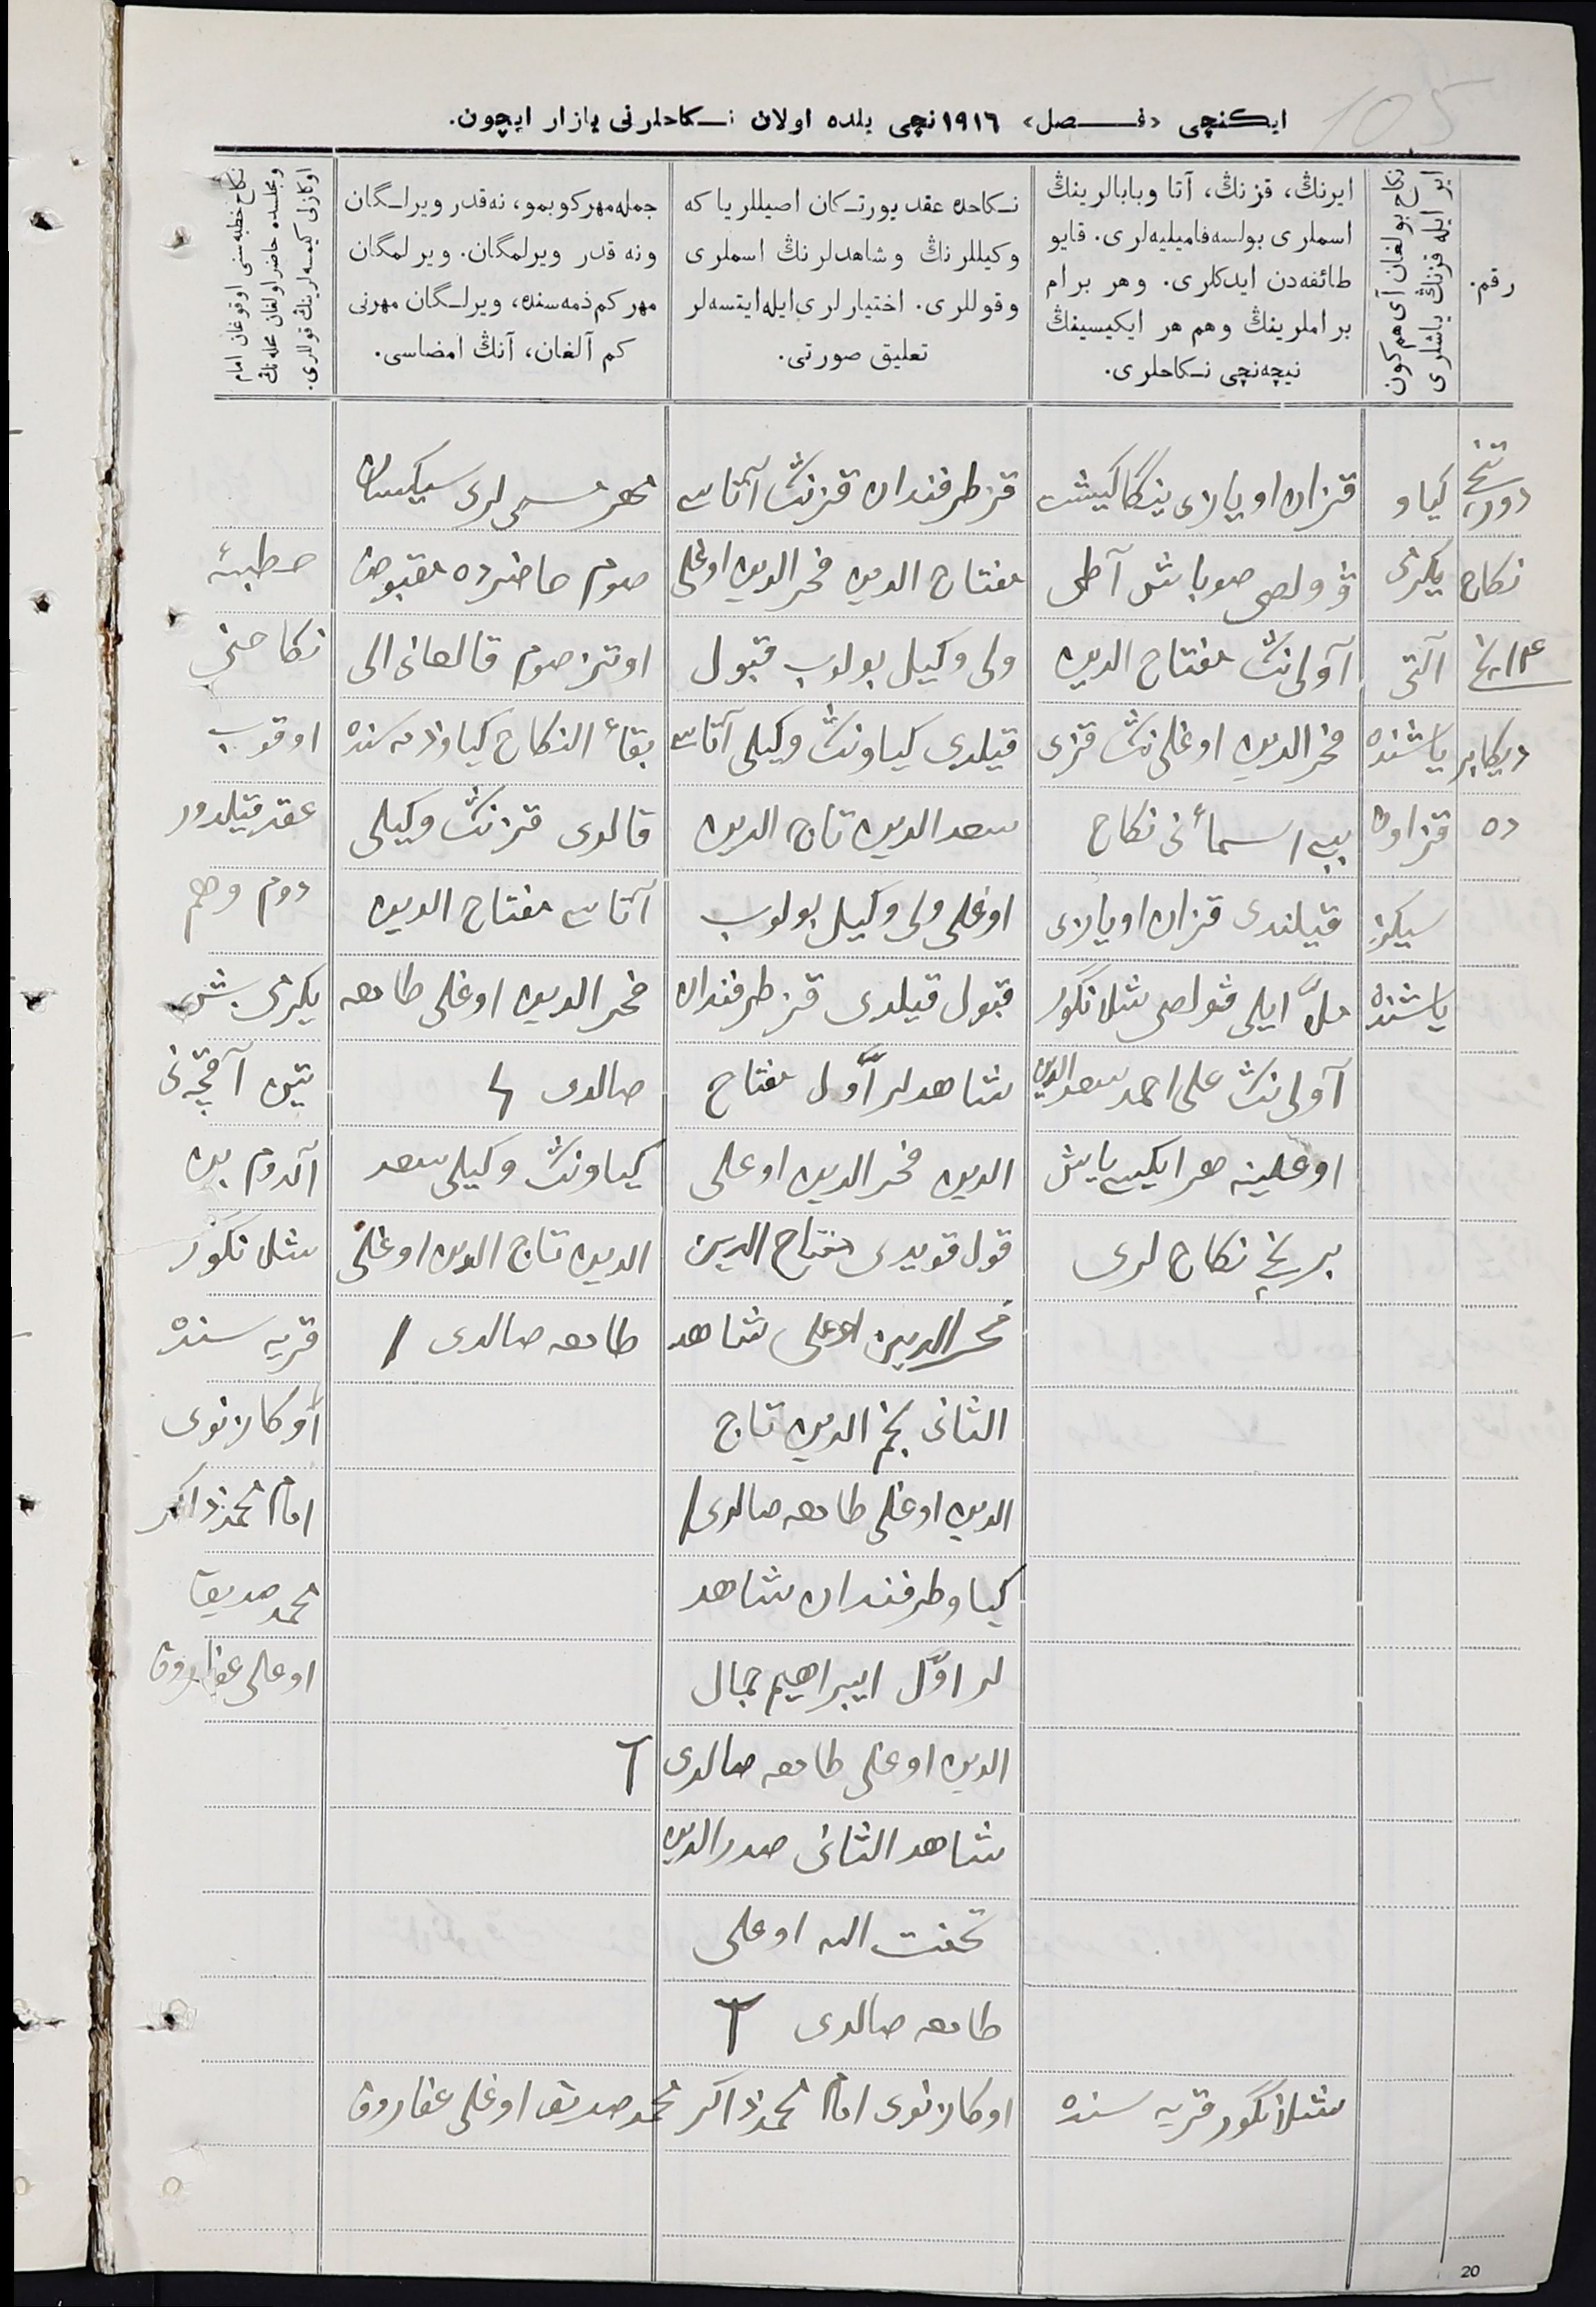 105
ایکنچی «فصل» ١٩١٦نچی یلده اولان نكاحلرنی یازار ایچون.
رقم.
نكاح بولغان آی هم کون
ایر ایله قزنڭ یاشلری
ایرنڭ، قزنڭ، آتا وبابالرینڭ
اسملری بولسه فامیلیه‌لری. قایو
طائفه‌دن ایدکلری. وهر برام
براملرینڭ وهم هر ایکیسینڭ
نیچه‌نچی نكاحلری.
نكاحده عقد یورتكان اصیللریا که
وکیللرنڭ وشاهدلرنڭ اسملری
وقوللری. اختیارلری‌ایله‌ایتسه‌لر
تعلیق صورتی.
جمله‌مهرکوبمو، نه‌قدر ویرلـگان
ونه قدر ویرلمگان. ویرلمگان
مهرکم ذمه‌سنده، ویرلـگان مهرنی
کم آلغان، آنڭ امضاسی.
نكاح خطبه‌سنی اوقوغان امام
ومجلسده حاضر اولغان محله‌نڭ
اوکازلی کیمسه‌لرینڭ قوللری.
دورتنچی
نكاح
١٤نچی
دیکابر
ده
کیاو
یکرمی
آلتی
یاشنده
قزاون
سیکز
یاشنده
قزان اویازی ینگاکیشت
ڤولصی صوباش آطی
آولی نڭ مفتاح الدین
فخر الدین اوغلی نڭ قزی
بیبی اسمأنی نكاح
قیلندی قزان اویازی
ملّا ایلی ڤولصی شلانگور
آولی نڭ علی احمد سعد الدین
اوغلینه هر ایکیسی یاش
برنچی نكاح لری
قز طرفندان قزنڭ آتاسی
مفتاح الدین فخر الدین اوغلی
ولی وکیل بولوب قبول
قیلدی کیاونڭ وکیلی آتاسی
سعد الدین تاج الدین
اوغلی ولی وکیل بولوب
قبول قیلدی قز طرفندان
شاهدلر اوّل مفتاح
الدین فخر الدین اوغلی
قول قویدی مفتاح الدین
فخر الدین اوغلی شاهد
الثانی نجم الدین تاج
الدین اوغلی طامغه صالدی
کیاو طرفندان شاهد
لر اوّل ایبراهیم جمال
الدین اوغلی طامغه صالدی
شاهد الثانی صدر الدین
تحفت الله اوغلی
طامغه صالدی
مهر لری سیکسان
صوم حاضرده مقبوض
اوتز صوم قالغانی الی
بقاء النكاح کیاو ذمه سنده
قالدی قزنڭ وکیلی
آتاسی مفتاح الدین
فخر الدین اوغلی طامغه
صالدی
کیاونڭ وکیلی سعد
الدین تاج الدین اوغلی
طامغه صالدی
خطبهٔ
نكاحنی
اوقوب
عقد قیلدور
دوم وهم
یکرمی بش
تین آقچه‌نی
آلدوم بن
شلانگور
قریه سنده
اوکازنوی
امام محمد ذاکر
محمد صدیق
اوغلی غفاروف
شلانگور قریه سنده اوکازنوی امام محمد ذاکر محمد صدیق اوغلی غفاروف
20